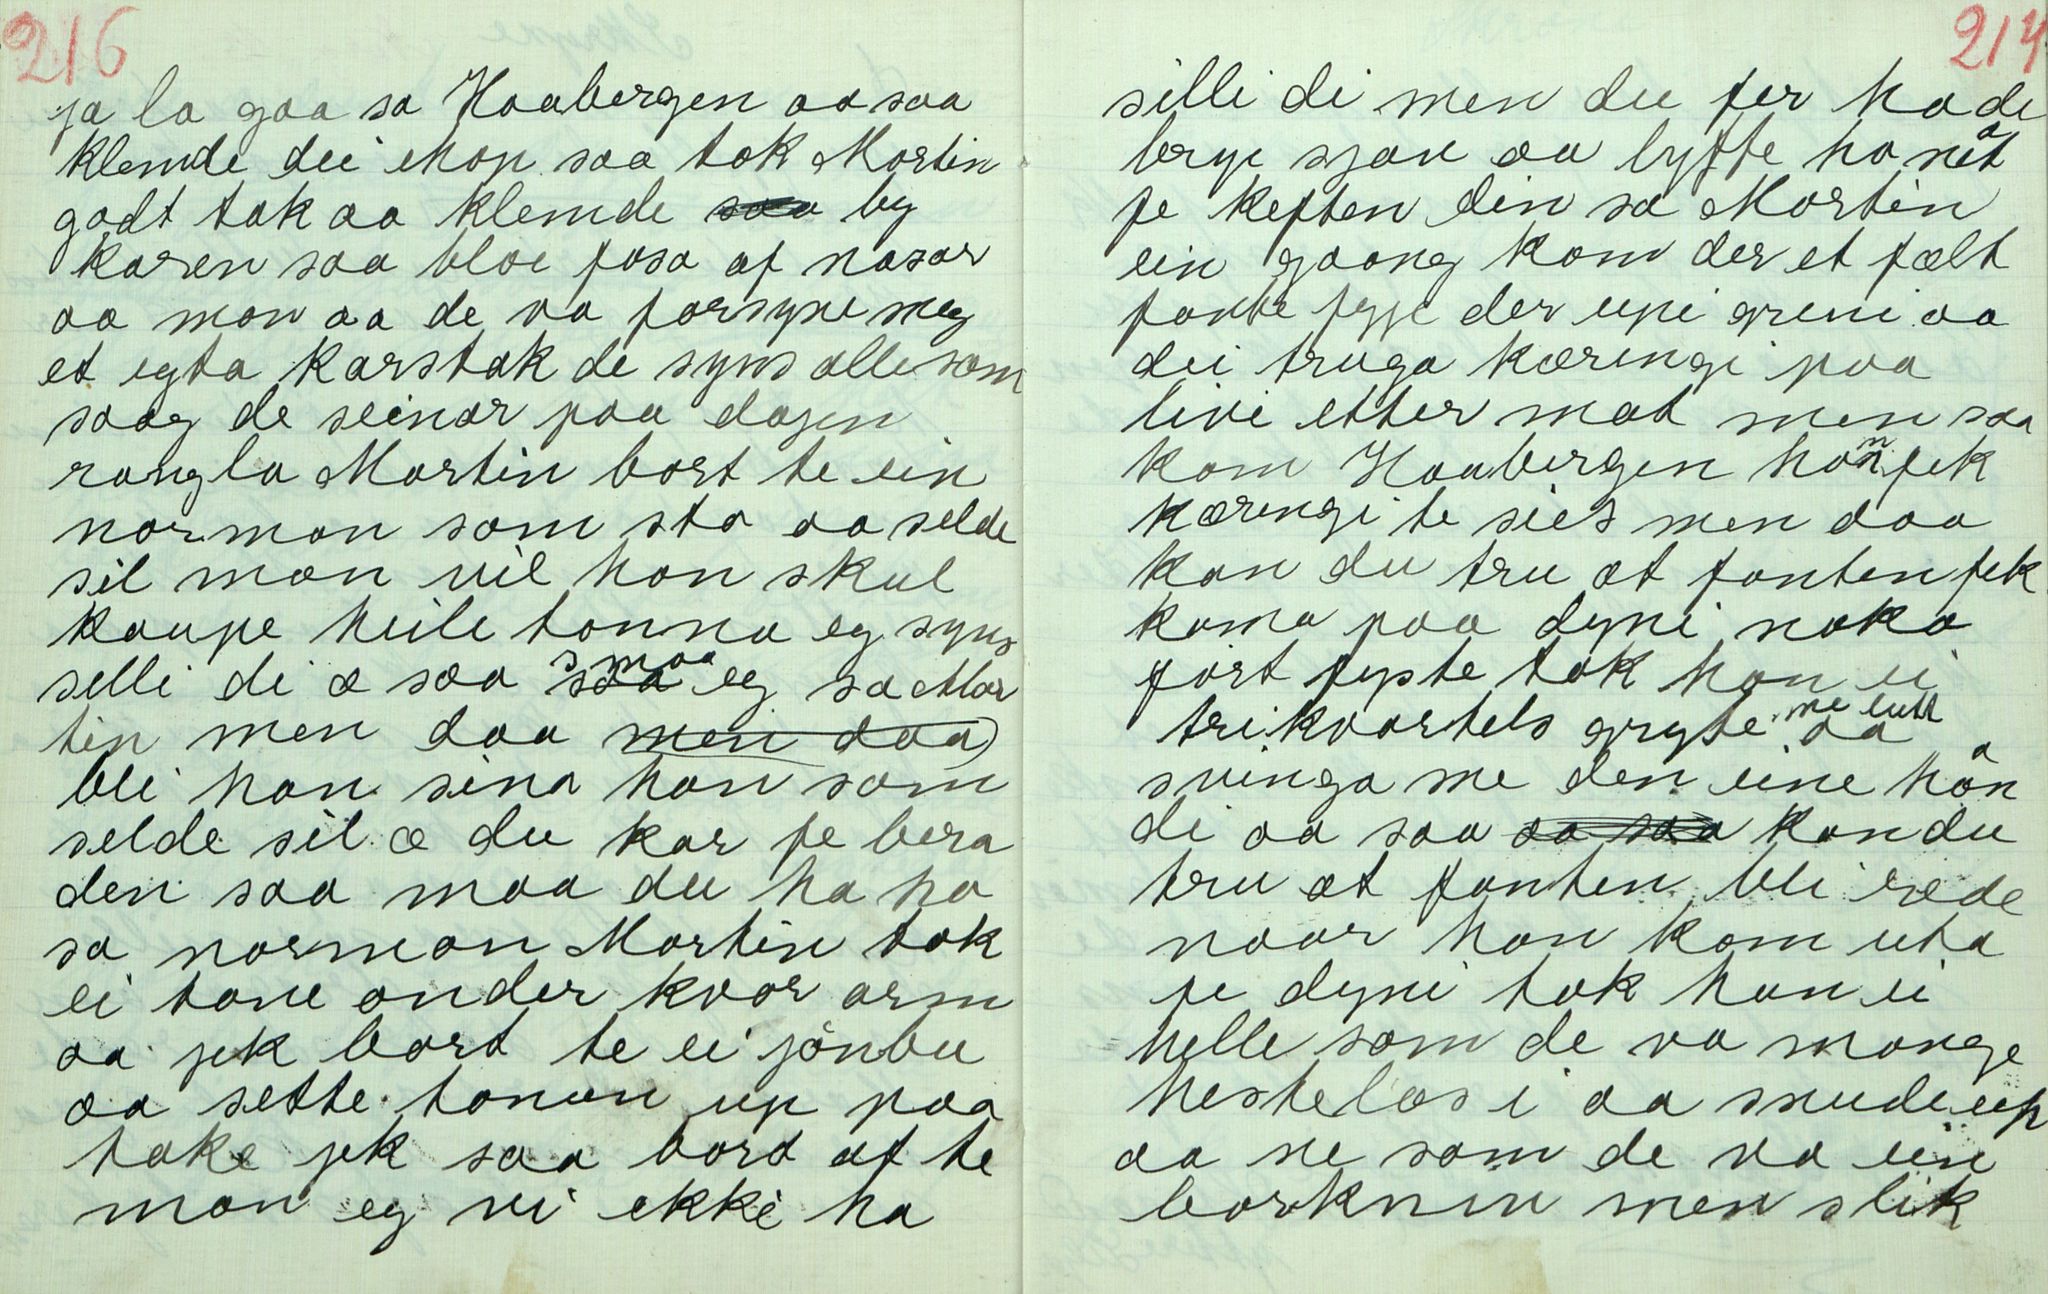 216
ja la gaa sa Haabergen aa saa
klemde dei ihop saa tok Martin
godt tak aa klemde saa by
karen saa bloe fosa af nasar
aa mon aa de va forsyne meg
et egta karstak de syns alle som
saag de seinar paa dagen
rangla Martin bort te ein
norman som sto aa selde
sil mon vil han skul
kaupe heile tonna eg syns
selli di æ saa smaa eg sa Mar
tin men daa men daa
bli han sina han som
selde sil æ du kar fe bera
den saa maa du ha ho
sa norman Martin tok
ei tone onder kvar arm
aa jek bort te ei jönbu
aa sette tonun up paa
take jek saa bort af te
man eg vi ikki ha
214
silli di men du fer ha de
brye sjøu aa lyfte ho nat
fe keften din sa Martin
ein gaang kom der et fælt
fantefygje der upi greni aa
dei truga kæringi paa
livi etter mat men saa
kom Haabergen han fek
kæringi te sies men daa
kan du tru at fanten fek
koma paa dyni noko
fört fyste tok han ei
trikvartels gryte me lutt aa
svinga me den eine hån
di aa saa aa saa kan du
tru at fanten bli ræde
naar han kom uta
fe dyni tok han ei
helle som de va mange
hestelas i aa snude up
aa ne som de va ein
barkniv men slik